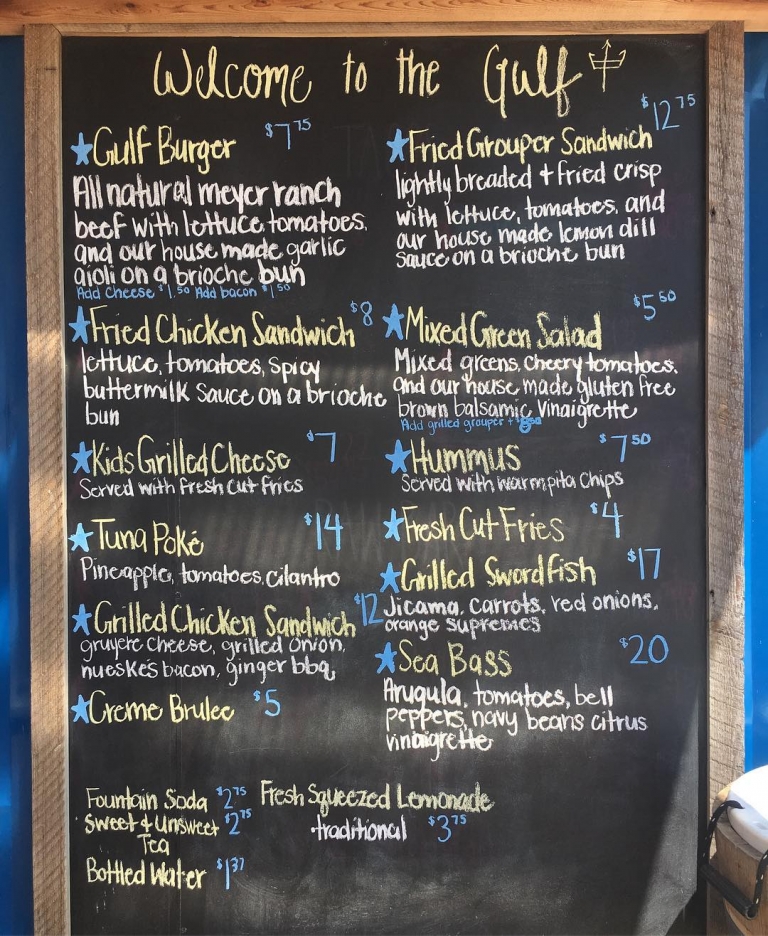 Welcome to the Gulf
★Gulf Burger $7.75
All natural meyer ranch
beef with lettuce, tomatoes,
and our house made garlic
aioli on a brioche bun
Add Cheese $1.50 Add bacon $1.50
★Fried Chicken Sandwich $8
lettuce, tomatoes, spicy
buttermilk sauce on a brioche
bun
★Kids Grilled Cheese $7
Served with fresh cut fries
★Tuna Poké $14
Pineapple, tomatoes, cilantro
★Grilled Chicken Sandwich $12
gruyere cheese, grilled onion,
nueske's bacon, ginger bbq
★Creme Brulee $5
★Fried Grouper Sandwich $12.75
lightly breaded + fried crisp
with lettuce, tomatoes, and
our house made lemon dill
sauce on a brioche bun
★Mixed Green Salad $5.50
Mixed greens, cheery tomatoes,
and our house made gluten free
brown balsamic vinaigrette
Add grilled grouper +
★Hummus $7.50
Served with warm pita chips
★Fresh Cut Fries $4
★Grilled Swordfish $17
Jicama, carrots, red onions,
orange supremes
★Sea Bass $20
Arugula, tomatoes, bell
peppers, navy beans citrus
vinaigrette
Fountain Soda $2.75
Sweet & Unsweet $2.75
Tea
Bottled Water $1.37
Fresh Squeezed Lemonade
·traditional $3.75